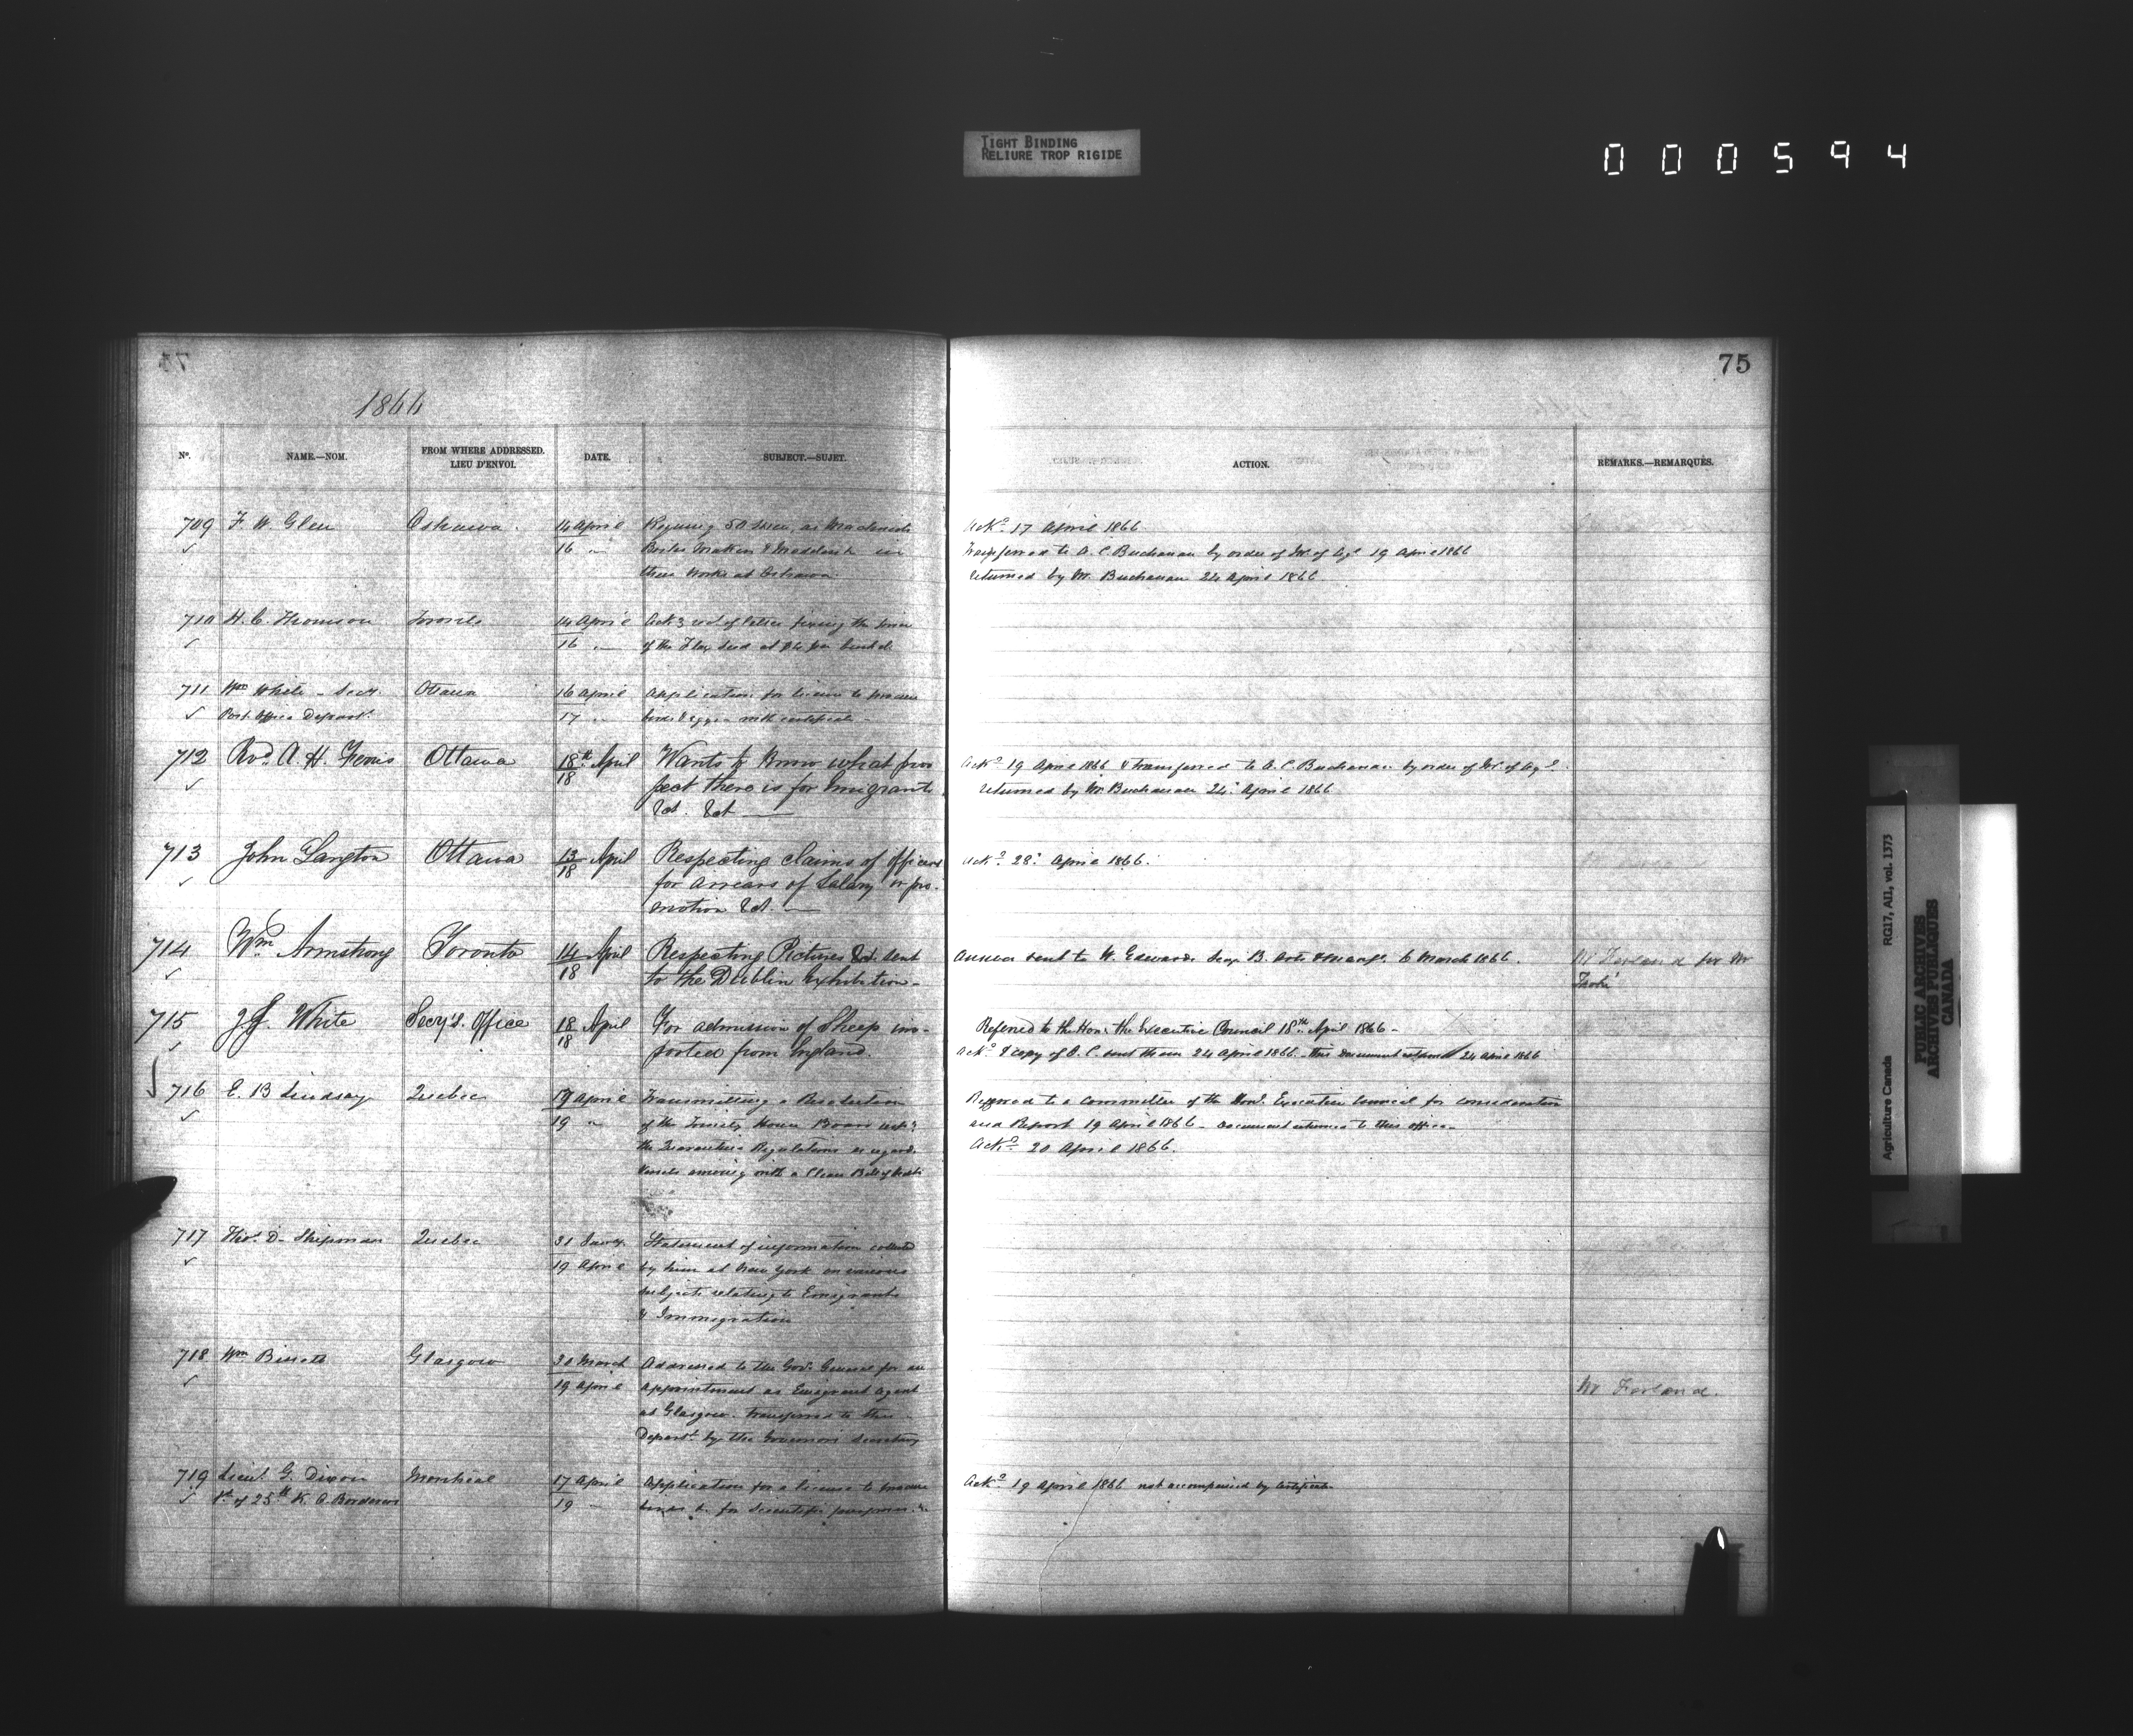 TIGHT BINDING
RELIURE TROP RIGIDE
000594
75
1866
No.
NAME.—NOM.
FROM WHERE ADDRESSED.
LIEU D'ENVOI.
DATE.
SUBJECT.—SUJET.
ACTION.
REMARKS.—REMARQUES.
709 F. W. Glen Oshawa. 14 April
16 "
their works at Oshawa.
Ackd 17 April 1866.
Transferred to A. C. Buchanan by order of M. of Agr 19 April 1866
returned by Mr Buchanan 24 April 1866.
710 H. C. Thomson Toronto 14 April Ackg rect of letter fixing the price
16 " of the Flax seed at $4 per bushel
711 Wm White - Secy. Ottawa 16 April Application for license to procure
Post Office Depart. 17 " birds & eggs with certificate -
712 Revd. A. H. Ottawa 18th April Wants to know what pros
18 pect there is for Emigrants
&ct. &ct
Ackd 19 April 1866 & transferred to A. C. Buchanan by order of M. of Agr.
returned by Mr Buchanan 24 April 1866
713 John Langton Ottawa 13 April Respecting claims of officers
18 for arrears of Salary or pro-
motion &ct.
Ackd 28 April 1866.
714 Wm Armstrong Toronto 14 April Respecting Pictures &ct. sent
18 to the Dublin Exhibition -
Answer sent to W. Edwards Secy. B. Arts & Manufs. 6 March 1866.
Mr Ferland for Mr
Taché
715 White Secy's. Office 18 April For admission of Sheep im-
18 ported from England.
Referred to the Hon. the Executive Council 18th April 1866 -
Ackd & copy of O. C. sent them 24 April 1866. - This document returned 24 April 1866
716 E. B Lindsay Quebec 17 April Transmitting a Resolution
19 " of the Trinity House Board
the Quarantine Regulations as regards
Vessels arriving with a Clean Bill of Health
Referred to a Committee of the Hon. Executive Council for consideration
and Report 19 April 1866 - Document returned to this office -
Ackd 20 April 1866.
717 Thos. D. Shipman Quebec 31 Jany. Statement of information collected
19 April by him at New York on various
subjects relating to Emigrants
& Immigration
718 Wm Glasgow 30 March Addressed to the Gov. General for an
19 April appointment as Emigrant Agent
at Glasgow. Transferred to this
Departt by the Governor's Secretary
Mr Ferland.
719 Lieut. G. Dixon Montreal 17 April Application for a license to procure
of 25th K. O. Borderers 19 " birds &c for Scientific purposes
Ackd 19 April 1866 not accompanied by certificate
Agriculture Canada
RG17, AII, vol. 1373
PUBLIC ARCHIVES
ARCHIVES PUBLIQUES
CANADA